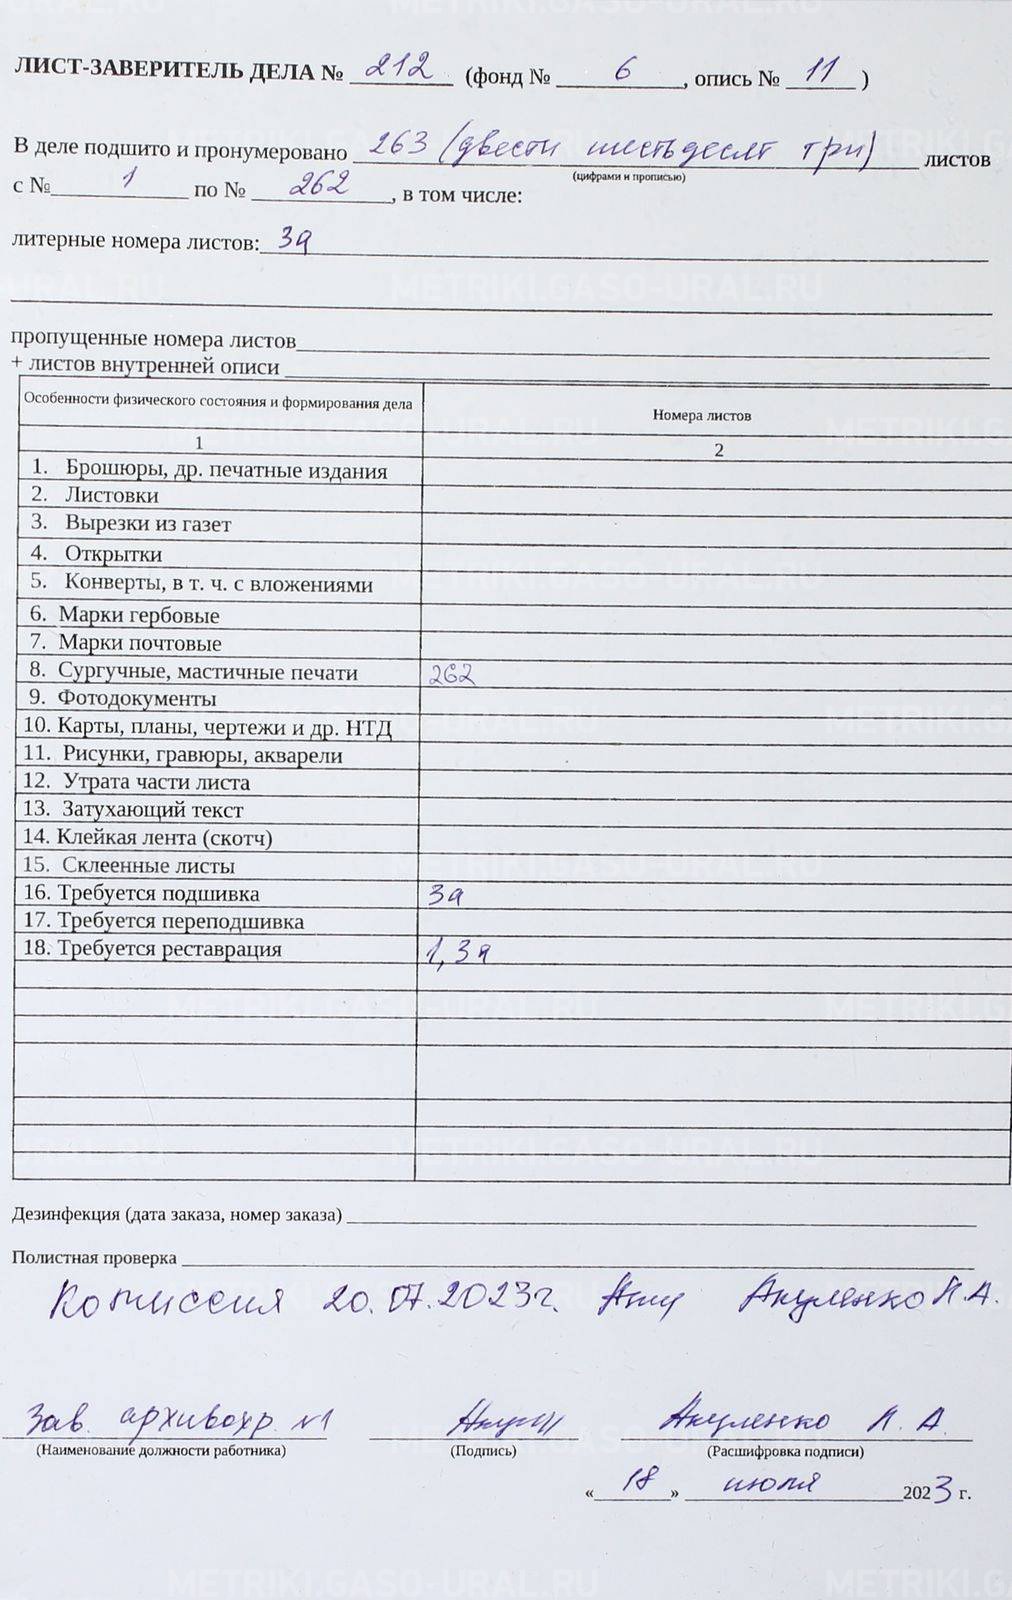 ЛИСТ-ЗАВЕРИТЕЛЬ ДЕЛА № 212 (фонд № 6, опись № 11)
В деле подшито и пронумеровано 263 (двести шестьдесят три) листов
(цифрами и прописью)
с № 1 по № 262, в том числе:
литерные номера листов: 3а
пропущенные номера листов
+ листов внутренней описи
Особенности физического состояния и формирования дела Номера листов
1 2
1. Брошюры, др. печатные издания
2. Листовки
3. Вырезки из газет
4. Открытки
5. Конверты, в т. ч. с вложениями
6. Марки гербовые
7. Марки почтовые
8. Сургучные, мастичные печати 262
9. Фотодокументы
10. Карты, планы, чертежи и др. НТД
11. Рисунки, гравюры, акварели
12. Утрата части листа
13. Затухающий текст
14. Клейкая лента (скотч)
15. Склеенные листы
16. Требуется подшивка 3а
17. Требуется переподшивка
18. Требуется реставрация 1, 3а
Дезинфекция (дата заказа, номер заказа)
Полистная проверка
Комиссия 20.07.2023г. Акуленко Л.А.
Зав. архивохр. №1 Акуленко Л. А.
(Наименование должности работника) (Подпись) (Расшифровка подписи)
«18» июля 2023 г.
METRIKI.GASO-URAL.RU